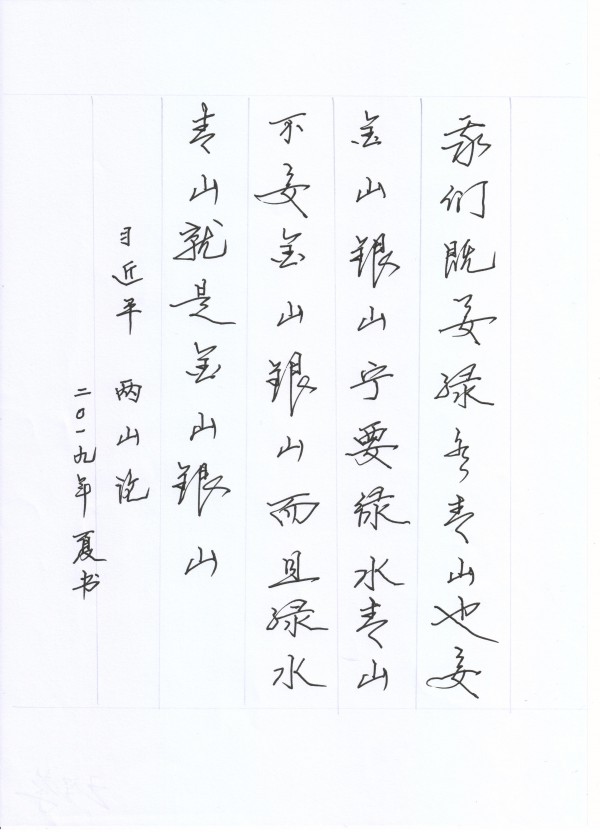 我们既要绿水青山也要
金山银山宁要绿水青山
不要金山银山而且绿水
青山就是金山银山
习近平 两山论
二〇一九年夏书